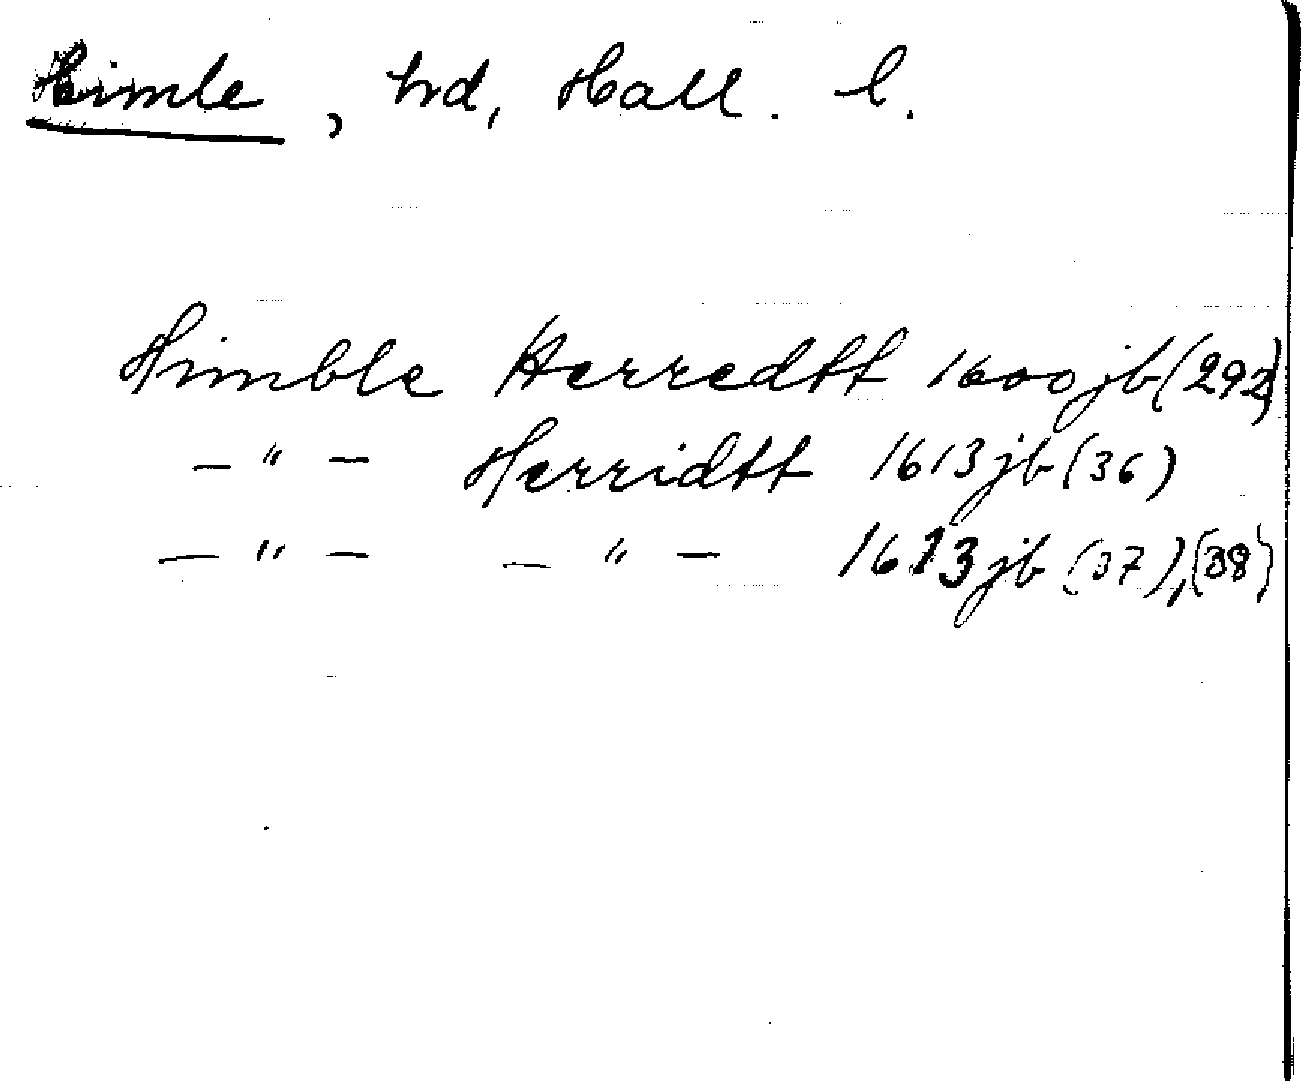 Himle, hd, Hall. l.
Himble Herredtt 1600 jb (292)
— " — Herridtt 1613 jb (36)
— " — — " — 1613 jb (37), (38)